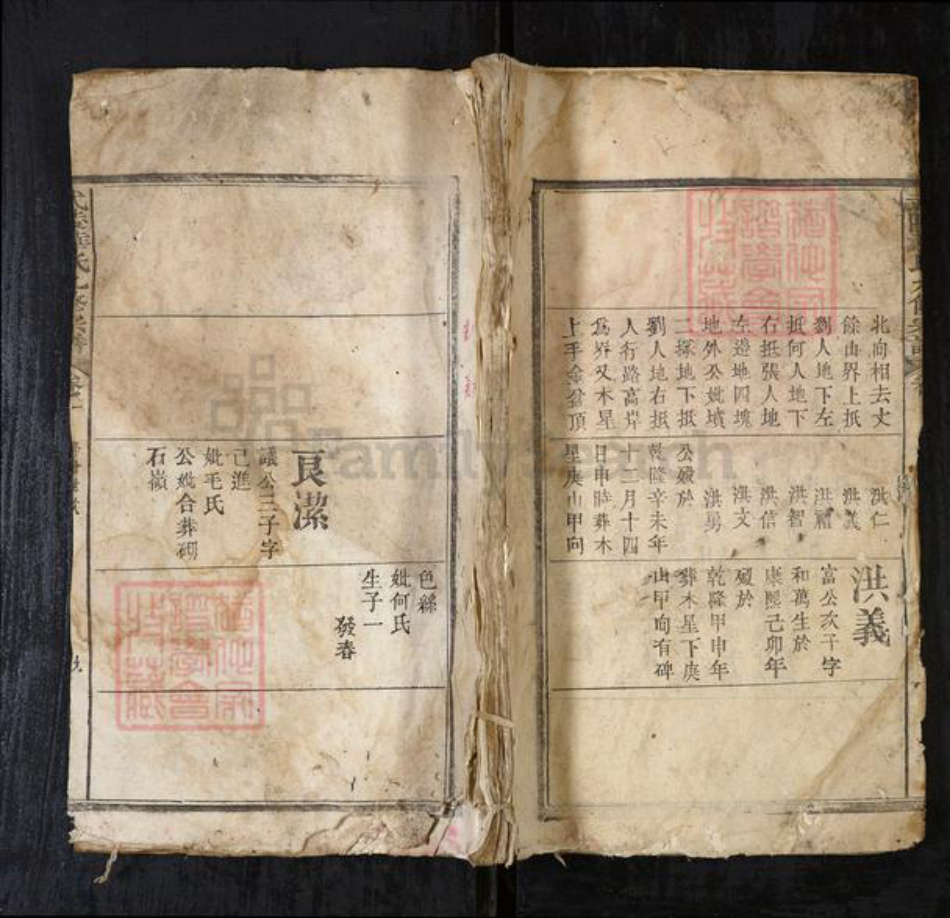 北向相去丈
餘山界上抵
劉人地下左
抵何人地下
右抵張人地
左邊地四塊
地外公妣墳
二塚地下抵
劉人地右抵
人行路高岸
爲界又木星
上手金盆頂
洪仁
洪義
洪禮
洪智
洪信
洪文
洪男
公歿於
乾隆辛未年
十二月十四
日申時葬木
星庚山甲向
洪義
富公次子字
和萬生於
康熙己卯年
歿於
乾隆甲申年
葬木星下庚
山甲向有碑
良潔
議公三子字
己進
妣毛氏
公妣合葬砌
石嶺
色縣
妣何氏
生子一
發春
FamilySearch